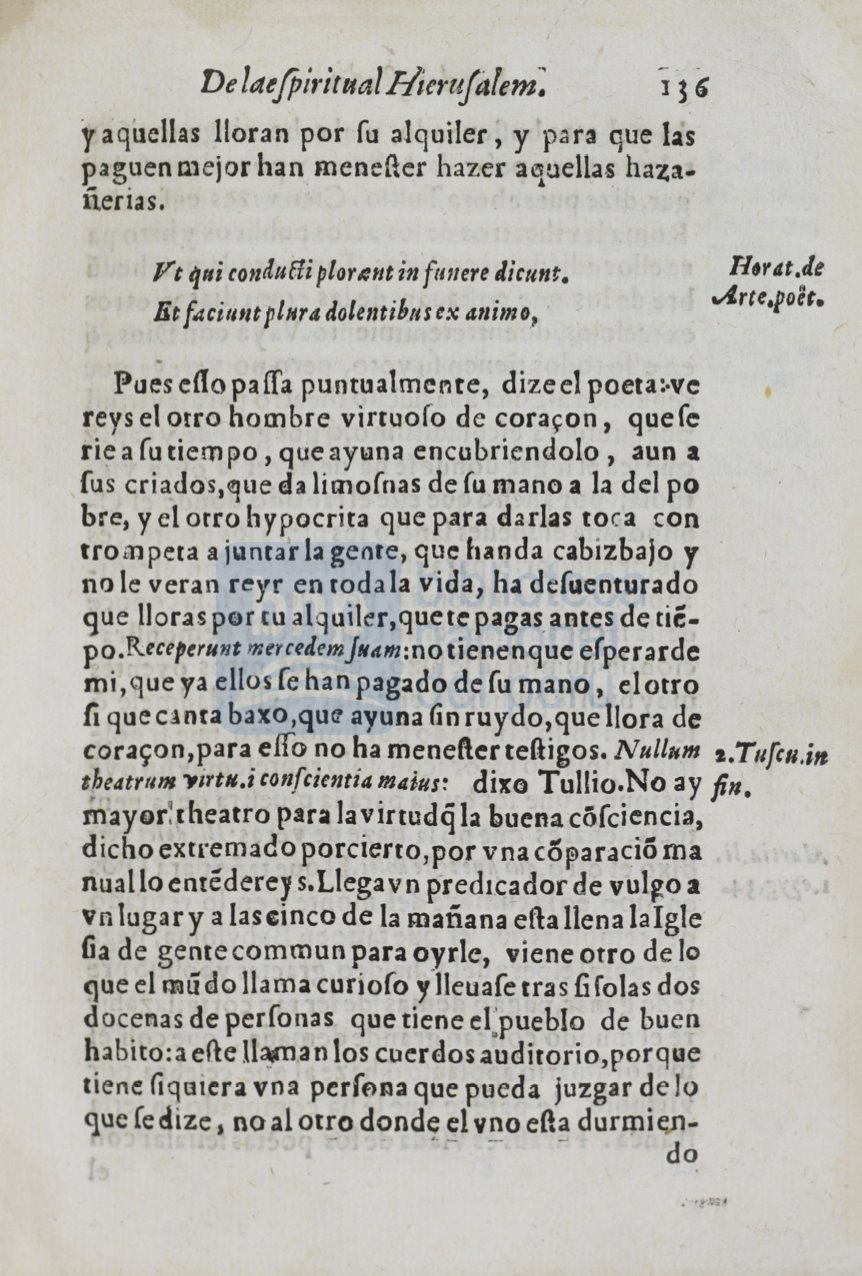 De la eſpiritual Hieruſalem. 136
y aquellas lloran por ſu alquiler, y para que las
paguen mejor han meneſter hazer aquellas haza-
ñerias.
Vt qui conducti plorant in funere dicunt.
Et faciunt plura dolentibus ex animo,
Horat. de
Arte. poët.
Pues eſto paſſa puntualmente, dize el poeta: ve
reys el otro hombre virtuoſo de coraçon, que ſe
rie a ſu tiempo, que ayuna encubriendolo, aun a
ſus criados, que da limoſnas de ſu mano a la del po
bre, y el otro hypocrita que para darlas toca con
trompeta a juntar la gente, que handa cabizbajo y
no le veran reyr en toda la vida, ha deſuenturado
que lloras por tu alquiler, que te pagas antes de tiẽ-
po. Receperunt mercedem ſuam: no tienen que eſperar de
mi, que ya ellos ſe han pagado de ſu mano, el otro
ſi que canta baxo, que ayuna ſin ruydo, que llora de
coraçon, para eſſo no ha meneſter teſtigos. Nullum
theatrum virtu.i conſcientia maius: dixo Tullio. No ay
2. Tuſcu. in
fin.
mayor theatro para la virtud q̃ la buena cõſciencia,
dicho extremado por cierto, por vna cõparaciõ ma
nual lo entẽdereys. Llega vn predicador de vulgo a
vn lugar y a las cinco de la mañana eſta llena la Igle
ſia de gente commun para oyrle, viene otro de lo
que el mũdo llama curioſo y lleuaſe tras ſi ſolas dos
docenas de perſonas que tiene el pueblo de buen
habito: a eſte llaman los cuerdos auditorio, porque
tiene ſiquiera vna perſona que pueda juzgar de lo
que ſe dize, no al otro donde el vno eſta durmien-
do